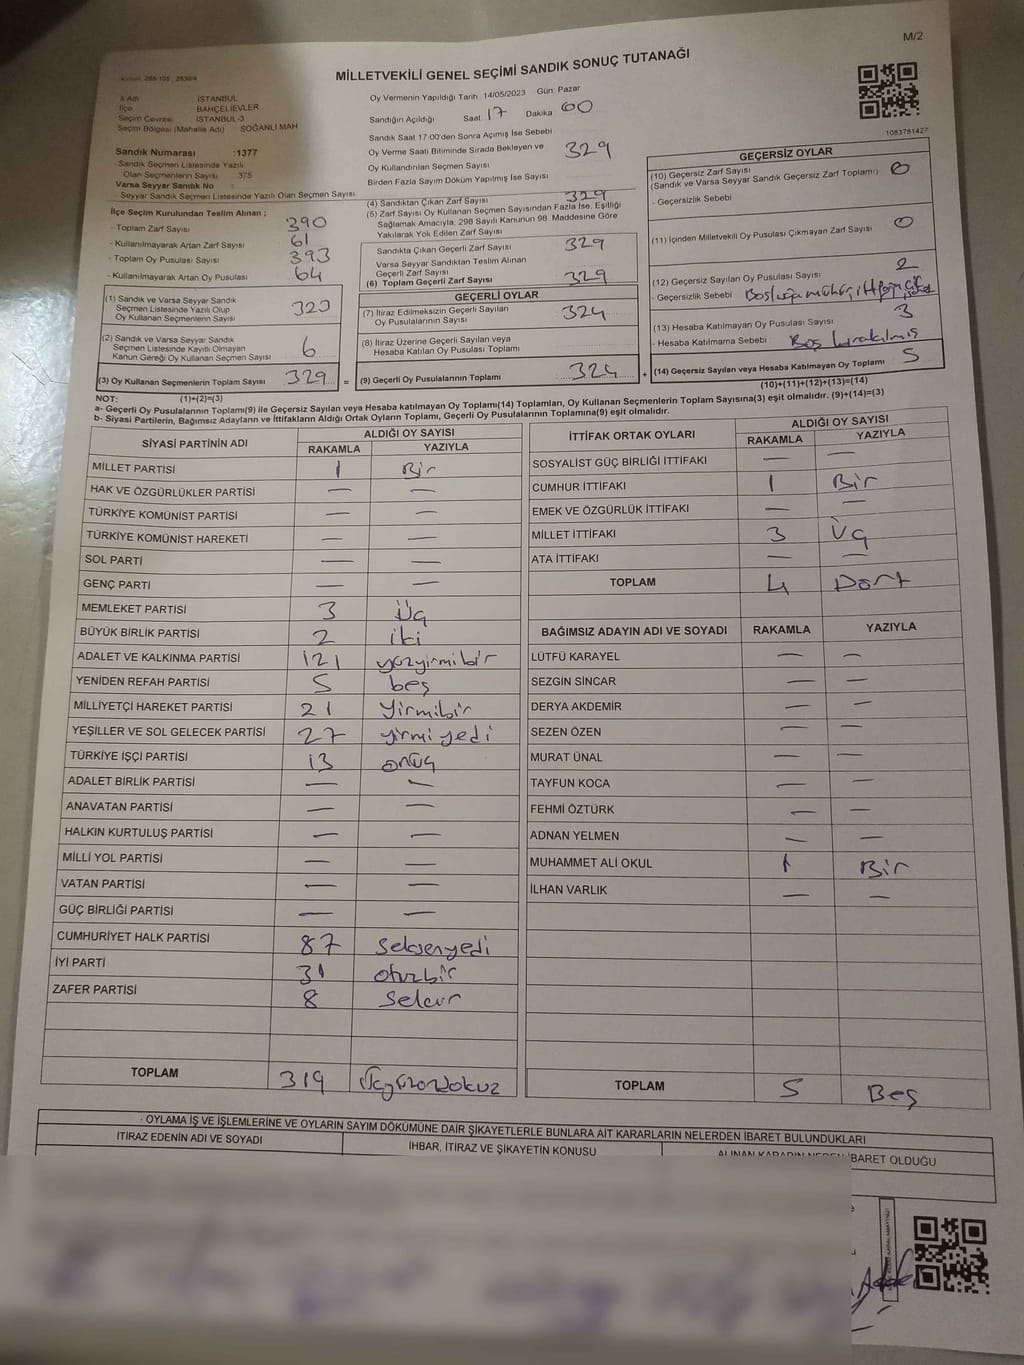 M/2
MİLLETVEKİLİ GENEL SEÇİMİ SANDIK SONUÇ TUTANAĞI
İl Adı İSTANBUL
İlçe BAHÇELİEVLER
Seçim Çevresi İSTANBUL-3
Seçim Bölgesi (Mahalle Adı) SOĞANLI MAH
Sandık Numarası :1377
- Sandık Seçmen Listesinde Yazılı
Olan Seçmenlerin Sayısı 375
Varsa Seyyar Sandık No :
- Seyyar Sandık Seçmen Listesinde Yazılı Olan Seçmen Sayısı
Oy Vermenin Yapıldığı Tarih 14/05/2023 Gün Pazar
Sandığın Açıldığı Saat 17 Dakika 00
Sandık Saat 17:00'den Sonra Açımış İse Sebebi
Oy Verme Saati Bitiminde Sırada Bekleyen ve
Oy Kullandırılan Seçmen Sayısı 329
Birden Fazla Sayım Döküm Yapılmış İse Sayısı
1083781427
İlçe Seçim Kurulundan Teslim Alınan ;
- Toplam Zarf Sayısı 390
- Kullanılmayarak Artan Zarf Sayısı 61
- Toplam Oy Pusulası Sayısı 393
- Kullanılmayarak Artan Oy Pusulası 64
(1) Sandık ve Varsa Seyyar Sandık
Seçmen Listesinde Yazılı Olup
Oy Kullanan Seçmenlerin Sayısı 323
(2) Sandık ve Varsa Seyyar Sandık
Seçmen Listesinde Kayıtlı Olmayan
Kanun Gereği Oy Kullanan Seçmen Sayısı 6
(3) Oy Kullanan Seçmenlerin Toplam Sayısı 329 =
(4) Sandıktan Çıkan Zarf Sayısı 329
(5) Zarf Sayısı Oy Kullanan Seçmen Sayısından Fazla İse, Eşitliği
Sağlamak Amacıyla, 298 Sayılı Kanunun 98. Maddesine Göre
Yakılarak Yok Edilen Zarf Sayısı
Sandıkta Çıkan Geçerli Zarf Sayısı 329
Varsa Seyyar Sandıktan Teslim Alınan
Geçerli Zarf Sayısı
(6) Toplam Geçerli Zarf Sayısı 329
GEÇERLİ OYLAR
(7) İtiraz Edilmeksizin Geçerli Sayılan
Oy Pusulalarının Sayısı 324
(8) İtiraz Üzerine Geçerli Sayılan veya
Hesaba Katılan Oy Pusulası Toplamı
(9) Geçerli Oy Pusulalarının Toplamı 324 +
GEÇERSİZ OYLAR
(10) Geçersiz Zarf Sayısı 0
(Sandık ve Varsa Seyyar Sandık Geçersiz Zarf Toplamı)
- Geçersizlik Sebebi
(11) İçinden Milletvekili Oy Pusulası Çıkmayan Zarf Sayısı 0
(12) Geçersiz Sayılan Oy Pusulası Sayısı 2
- Geçersizlik Sebebi
(13) Hesaba Katılmayan Oy Pusulası Sayısı 3
- Hesaba Katılmama Sebebi Boş bırakılmış
(14) Geçersiz Sayılan veya Hesaba Katılmayan Oy Toplamı 5
NOT: (1)+(2)=(3)
(10)+(11)+(12)+(13)=(14)
a- Geçerli Oy Pusulalarının Toplamı(9) ile Geçersiz Sayılan veya Hesaba katılmayan Oy Toplamı(14) Toplamları, Oy Kullanan Seçmenlerin Toplam Sayısına(3) eşit olmalıdır. (9)+(14)=(3)
b- Siyasi Partilerin, Bağımsız Adayların ve İttifakların Aldığı Ortak Oyların Toplamı, Geçerli Oy Pusulalarının Toplamına(9) eşit olmalıdır.
SİYASİ PARTİNİN ADI ALDIĞI OY SAYISI
RAKAMLA YAZIYLA
MİLLET PARTİSİ 1 Bir
HAK VE ÖZGÜRLÜKLER PARTİSİ — —
TÜRKİYE KOMÜNİST PARTİSİ — —
TÜRKİYE KOMÜNİST HAREKETİ — —
SOL PARTİ — —
GENÇ PARTİ — —
MEMLEKET PARTİSİ 3 Üç
BÜYÜK BİRLİK PARTİSİ 2 iki
ADALET VE KALKINMA PARTİSİ 121 yüzyirmibir
YENİDEN REFAH PARTİSİ 5 beş
MİLLİYETÇİ HAREKET PARTİSİ 21 Yirmibir
YEŞİLLER VE SOL GELECEK PARTİSİ 27 yirmiyedi
TÜRKİYE İŞÇİ PARTİSİ 13 onüç
ADALET BİRLİK PARTİSİ — —
ANAVATAN PARTİSİ — —
HALKIN KURTULUŞ PARTİSİ — —
MİLLİ YOL PARTİSİ — —
VATAN PARTİSİ — —
GÜÇ BİRLİĞİ PARTİSİ — —
CUMHURİYET HALK PARTİSİ 87 seksenyedi
İYİ PARTİ 31 otuzbir
ZAFER PARTİSİ 8 sekiz
TOPLAM 319 Üçyüzondokuz
İTTİFAK ORTAK OYLARI ALDIĞI OY SAYISI
RAKAMLA YAZIYLA
SOSYALİST GÜÇ BİRLİĞİ İTTİFAKI — —
CUMHUR İTTİFAKI 1 Bir
EMEK VE ÖZGÜRLÜK İTTİFAKI — —
MİLLET İTTİFAKI 3 Üç
ATA İTTİFAKI — —
TOPLAM 4 Dört
BAĞIMSIZ ADAYIN ADI VE SOYADI RAKAMLA YAZIYLA
LÜTFÜ KARAYEL — —
SEZGİN SİNCAR — —
DERYA AKDEMİR — —
SEZEN ÖZEN — —
MURAT ÜNAL — —
TAYFUN KOCA — —
FEHMİ ÖZTÜRK — —
ADNAN YELMEN — —
MUHAMMET ALİ OKUL 1 Bir
İLHAN VARLIK — —
TOPLAM 5 Beş
OYLAMA İŞ VE İŞLEMLERİNE VE OYLARIN SAYIM DÖKÜMÜNE DAİR ŞİKAYETLERLE BUNLARA AİT KARARLARIN NELERDEN İBARET BULUNDUKLARI
İTİRAZ EDENİN ADI VE SOYADI
İHBAR, İTİRAZ VE ŞİKAYETİN KONUSU
ALINAN KARARIN NEDEN İBARET OLDUĞU